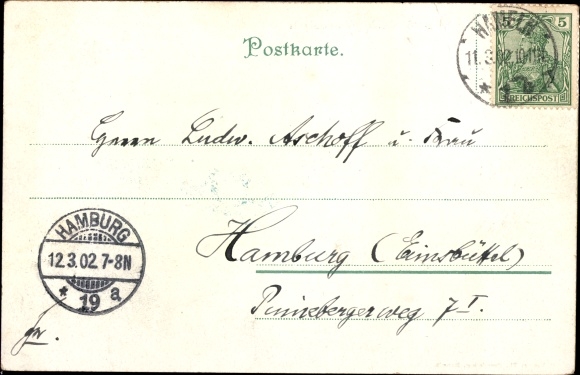 Postkarte.
HAMELN
11.3.02.10-11V.
* 1 b
5
REICHSPOST
Herrn Ludw. Aschoff u. Frau
HAMBURG
12.3.02.7-8N
* 19 a
Hamburg (Eimsbüttel)
Pinnebergerweg 7 I.
fr.